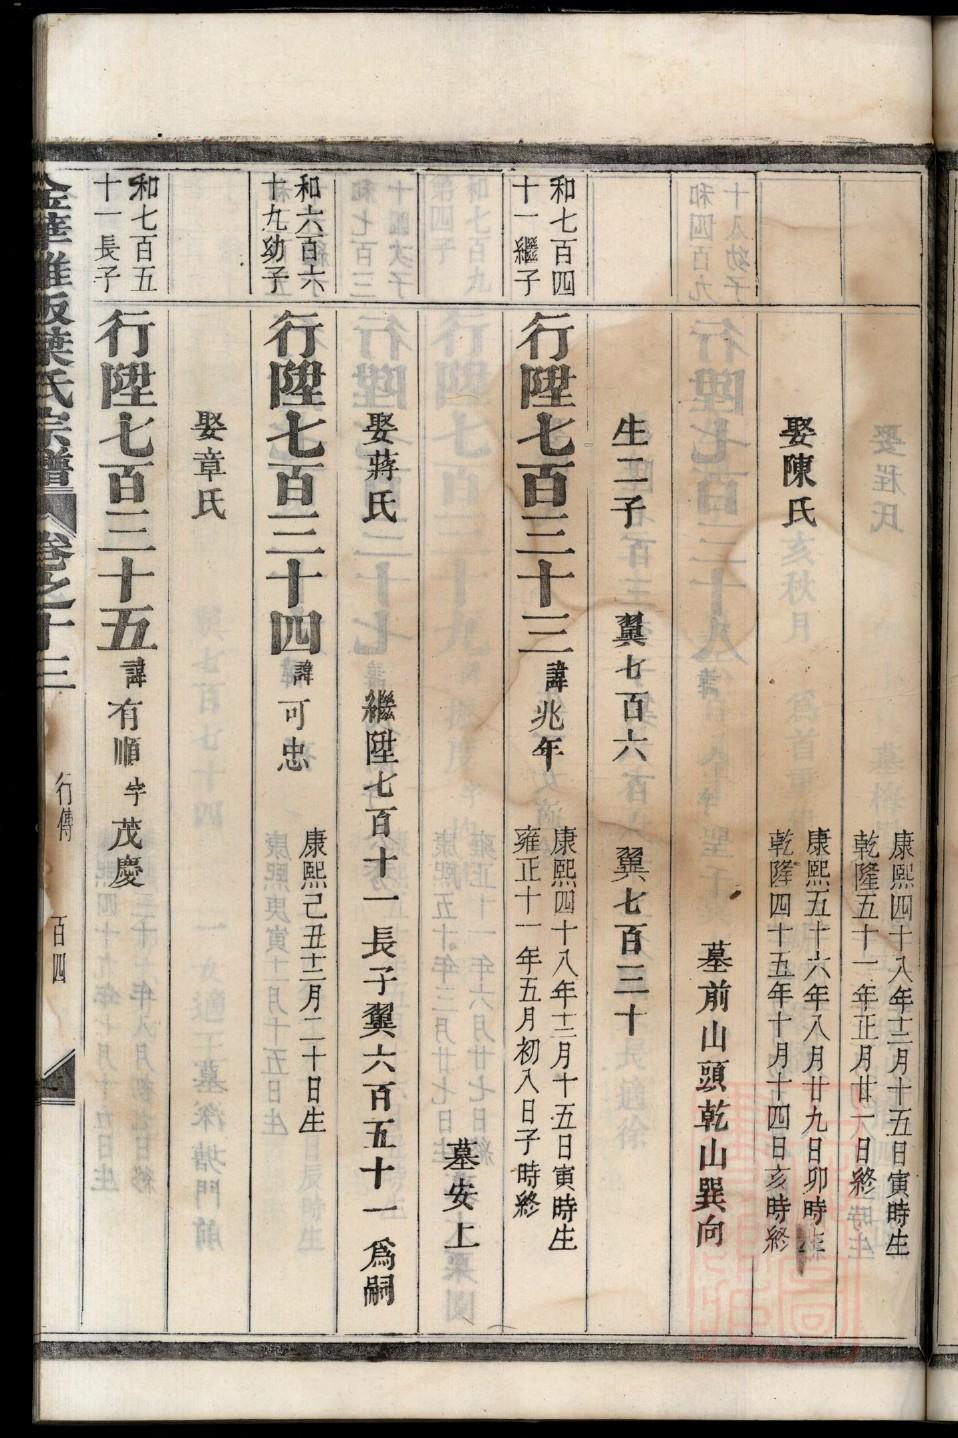 康熙四十八年十二月十五日寅時生
乾隆五十一年正月廿一日終
娶陳氏
康熙五十六年八月廿九日卯時生
乾隆四十五年十月十四日亥時終
墓前山頭乾山巽向
生二子 翼七百六 翼七百三十
和七百四
十一繼子
行陞七百三十三 諱兆年
康熙四十八年十二月十五日寅時生
雍正十一年五月初八日子時終
墓安上
娶蔣氏 繼陞七百十一長子翼六百五十一爲嗣
和六百六
十九幼子
行陞七百三十四 諱可忠
康熙己丑十二月二十日生
娶章氏
和七百五
十一長子
行陞七百三十五 諱有順 字茂慶
葉氏宗譜 卷之十三 行傳 百四